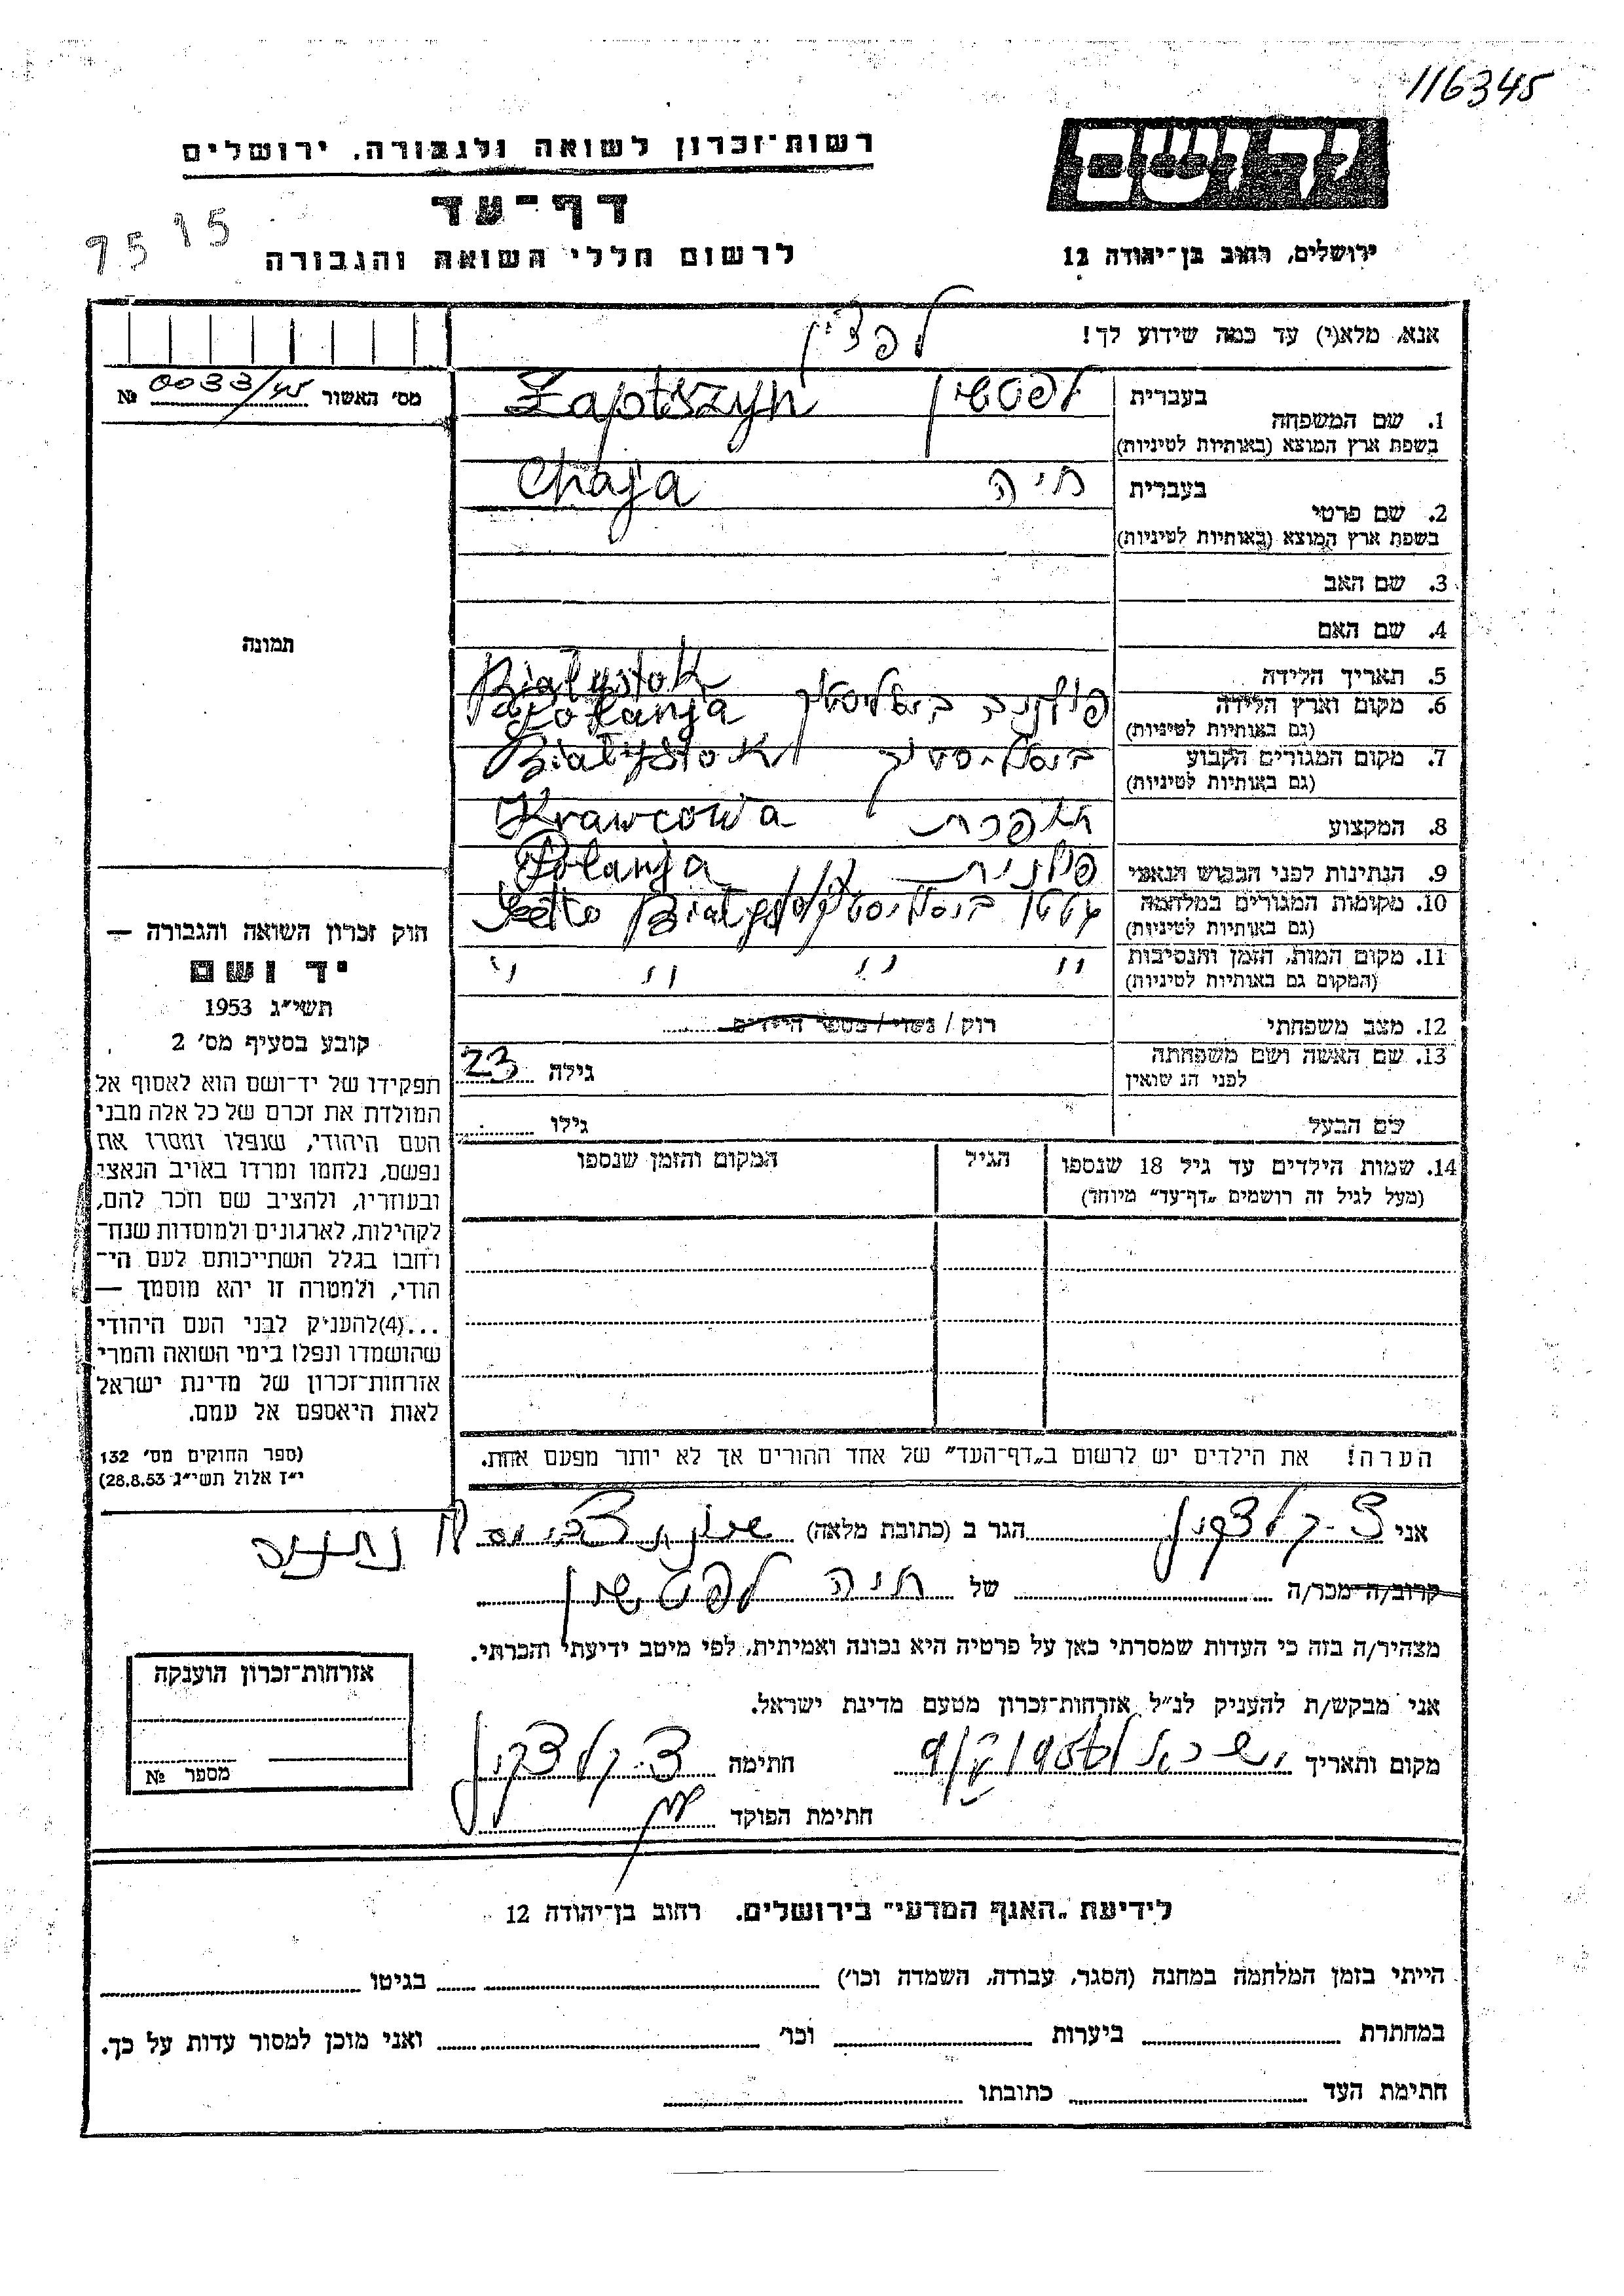 116345
יד ושם
רשות-זכרון לשואה ולגבורה, ירושלים
דף-עד
ירושלים, רחוב בן-יהודה 12
לרשום חללי השואה והגבורה
אנא, מלא(י) עד כמה שידוע לך!
לפצין
מס׳ האשור 0033/45 №
1. שם המשפחה
בעברית
בשפת ארץ המוצא (באותיות לטיניות)
לפטשין Łaptszyn
2. שם פרטי
בעברית
בשפת ארץ המוצא (באותיות לטיניות)
חיה Chaja
3. שם האב
4. שם האם
5. תאריך הלידה
6. מקום וארץ הלידה
(גם באותיות לטיניות)
Bialystok
Polanja
7. מקום המגורים הקבוע
(גם באותיות לטיניות)
Bialystok
8. המקצוע
תופרת Krawcowa
9. הנתינות לפני הכבוש הנאצי
פולנית Polanja
10. מקומות המגורים במלחמה
(גם באותיות לטיניות)
גטו
11. מקום המות, הזמן והנסיבות
(המקום גם באותיות לטיניות)
" " " "
12. מצב משפחתי
רוק / נשוי / מספר הילדים
13. שם האשה ושם משפחתה
לפני הנשואין
גילה 23
שם הבעל
גילו
14. שמות הילדים עד גיל 18 שנספו
(מעל לגיל זה רושמים „דף-עד״ מיוחד)
הגיל
המקום והזמן שנספו
הערה! את הילדים יש לרשום ב„דף-העד״ של אחד ההורים אך לא יותר מפעם אחת.
תמונה
חוק זכרון השואה והגבורה —
יד ושם
תשי״ג 1953
קובע בסעיף מס׳ 2
תפקידו של יד-ושם הוא לאסוף אל
המולדת את זכרם של כל אלה מבני
העם היהודי, שנפלו ומסרו את
נפשם, נלחמו ומרדו באויב הנאצי
ובעוזריו, ולהציב שם וזכר להם,
לקהילות, לארגונים ולמוסדות שנח-
רבו בגלל השתייכותם לעם הי-
הודי, ולמטרה זו יהא מוסמך —
...(4) להעניק לבני העם היהודי
שהושמדו ונפלו בימי השואה והמרי
אזרחות-זכרון של מדינת ישראל
לאות היאספם אל עמם.
(ספר החוקים מס׳ 132
י״ז אלול תשי״ג 28.8.53)
אני הגר ב (כתובת מלאה)
קרוב/ה-מכר/ה של חיה לפטשין
מצהיר/ה בזה כי העדות שמסרתי כאן על פרטיה היא נכונה ואמיתית, לפי מיטב ידיעתי והכרתי.
אני מבקש/ת להעניק לנ״ל אזרחות-זכרון מטעם מדינת ישראל.
מקום ותאריך חתימה
חתימת הפוקד
אזרחות-זכרון הוענקה
מספר №
לידיעת „האגף המדעי״ בירושלים. רחוב בן-יהודה 12
הייתי בזמן המלחמה במחנה (הסגר, עבודה, השמדה וכו׳) בגיטו
במחתרת ביערות וכו׳ ואני מוכן למסור עדות על כך.
חתימת העד כתובתו